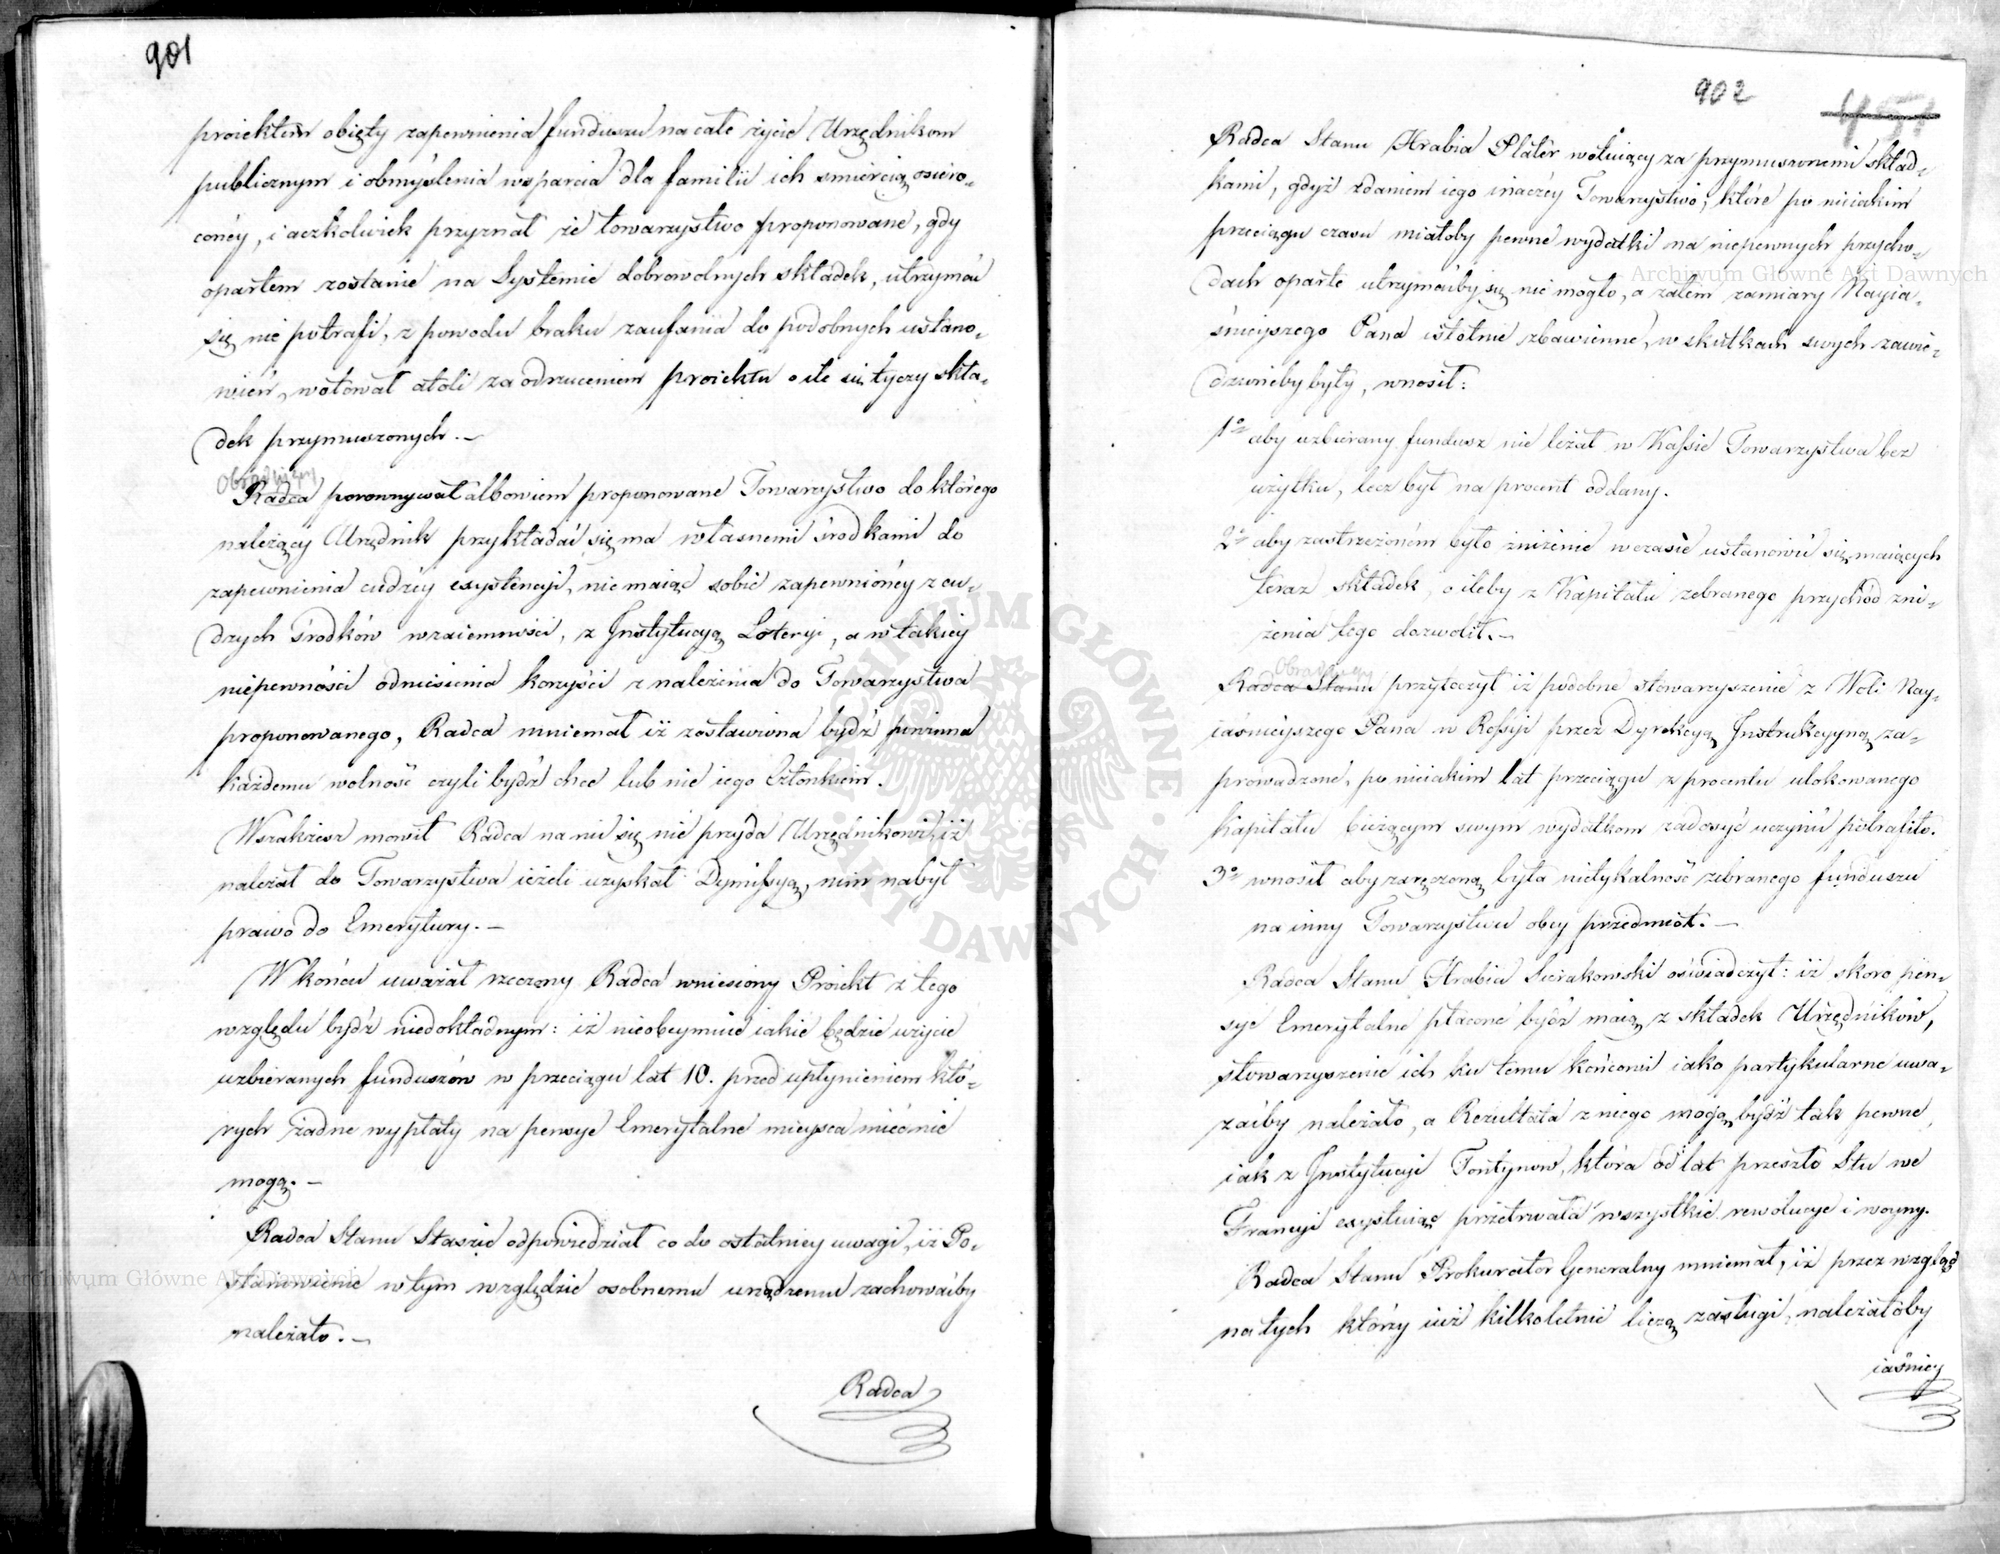 901
proiektem obięty zapewnienia funduszu na całe życie Urzędnikom
publicznym i obmyślenia wsparcia dla familii ich śmiercią osiero-
conéy, i aczkolwiek przyznał że towarzystwo proponowane, gdy
opartem zostanie na Systemie dobrowolnych składek, utrzymać
się nie potrafi, z powodu braku zaufania do podobnych ustano-
wień, wotował atoli za odrzuceniem proiektu o ile się tyczy skła-
dek przymuszonych.—
Radca porownywał albowiem proponowane Towarzystwo do którego
należący Urzędnik przykładać się ma własnemi środkami do
zapewnienia cudzéy exystencyi, nie maiąc sobie zapewnionéy z cu-
dzych środków wzaiemności, z Instytucyą Loteryi, a w takiey
niepewności odniesienia korzyści z należenia do Towarzystwa
proponowanego, Radca mniemał iż zostawiona bydź powinna
każdemu wolność czyli bydź chce lub nie iego Członkiem.
Wszakżesz mowił Radca na nic się nie przyda Urzędnikowi, iż
należał do Towarzystwa ieżeli uzyskał Dymissyą, nim nabył
prawo do Emerytury.—
W końcu uważał rzeczony Radca wniesiony Proiekt z tego
względu bydź niedokładnym: iż nieobeymuie iakie będzie użycie
uzbieranych funduszów w przeciągu lat 10. przed upłynieniem któ-
rych żadne wypłaty na pensye Emerytalne mieysca mieć nie
mogą.—
Radca Stanu Staszic odpowiedział co do ostatniey uwagi, iż Po-
stanowienie w tym względzie osobnemu urządzeniu zachowaćby
należało.—
Radca
902
Radca Stanu Hrabia Plater wotuiący za przymuszonemi skład-
kami, gdyż zdaniem iego inaczéy Towarzystwo; które po nieiakim
przeciągu czasu miałoby pewne wydatki na niepewnych przycho-
dach oparte utrzymaćby się nie mogło, a zatem zamiary Nayia-
śnieyszego Pana istotnie zbawienne, w skutkach swych zawie-
dzionéby były, wnosił:
1o aby uzbierany fundusz nie leżał w Kassie Towarzystwa bez
użytku, lecz był na procent oddany.
2o aby zastrzeżoném było zniżenie w czasie ustanowić się maiących
teraz składek, o ileby z Kapitału zebranego przychód zni-
żenia tego dozwolił.—
Radca Stanu przytoczył iż podobne stowarzyszenie z Woli Nay-
iaśnieyszego Pana w Rossyi przez Dyrekcyą Instrukcyyną za-
prowadzone, po nieiakim lat przeciągu z procentu ulokowanego
Kapitału bieżącym swym wydatkom zadosyć uczynić potrafiło.
3o wnosił aby zaręczoną była nietykalność zebranego funduszu
na inny Towarzystwu obcy przedmiot.—
Radca Stanu Hrabia Sierakowski oświadczył: iż skoro pen-
sye Emerytalne płacone bydź maią z składek Urzędników,
stowarzyszenie ich ku temu końcowi iako partykularne uwa-
żaćby należało, a Rezultata z niego mogą bydź tak pewne,
iak z Instytucyi Tontynow, która od lat przeszło Stu we
Francyi exystuiąc przetrwała wszystkie rewolucye i woyny.
Radca Stanu Prokurator Generalny mniemał, iż przez wzgląd
na tych którzy iuż kilkoletnie liczą zasługi, należałoby
iaśniey
Archiwum Główne Akt Dawnych
Archiwum Główne Akt Dawnych
ARCHIWUM GŁÓWNE · AKT DAWNYCH ·